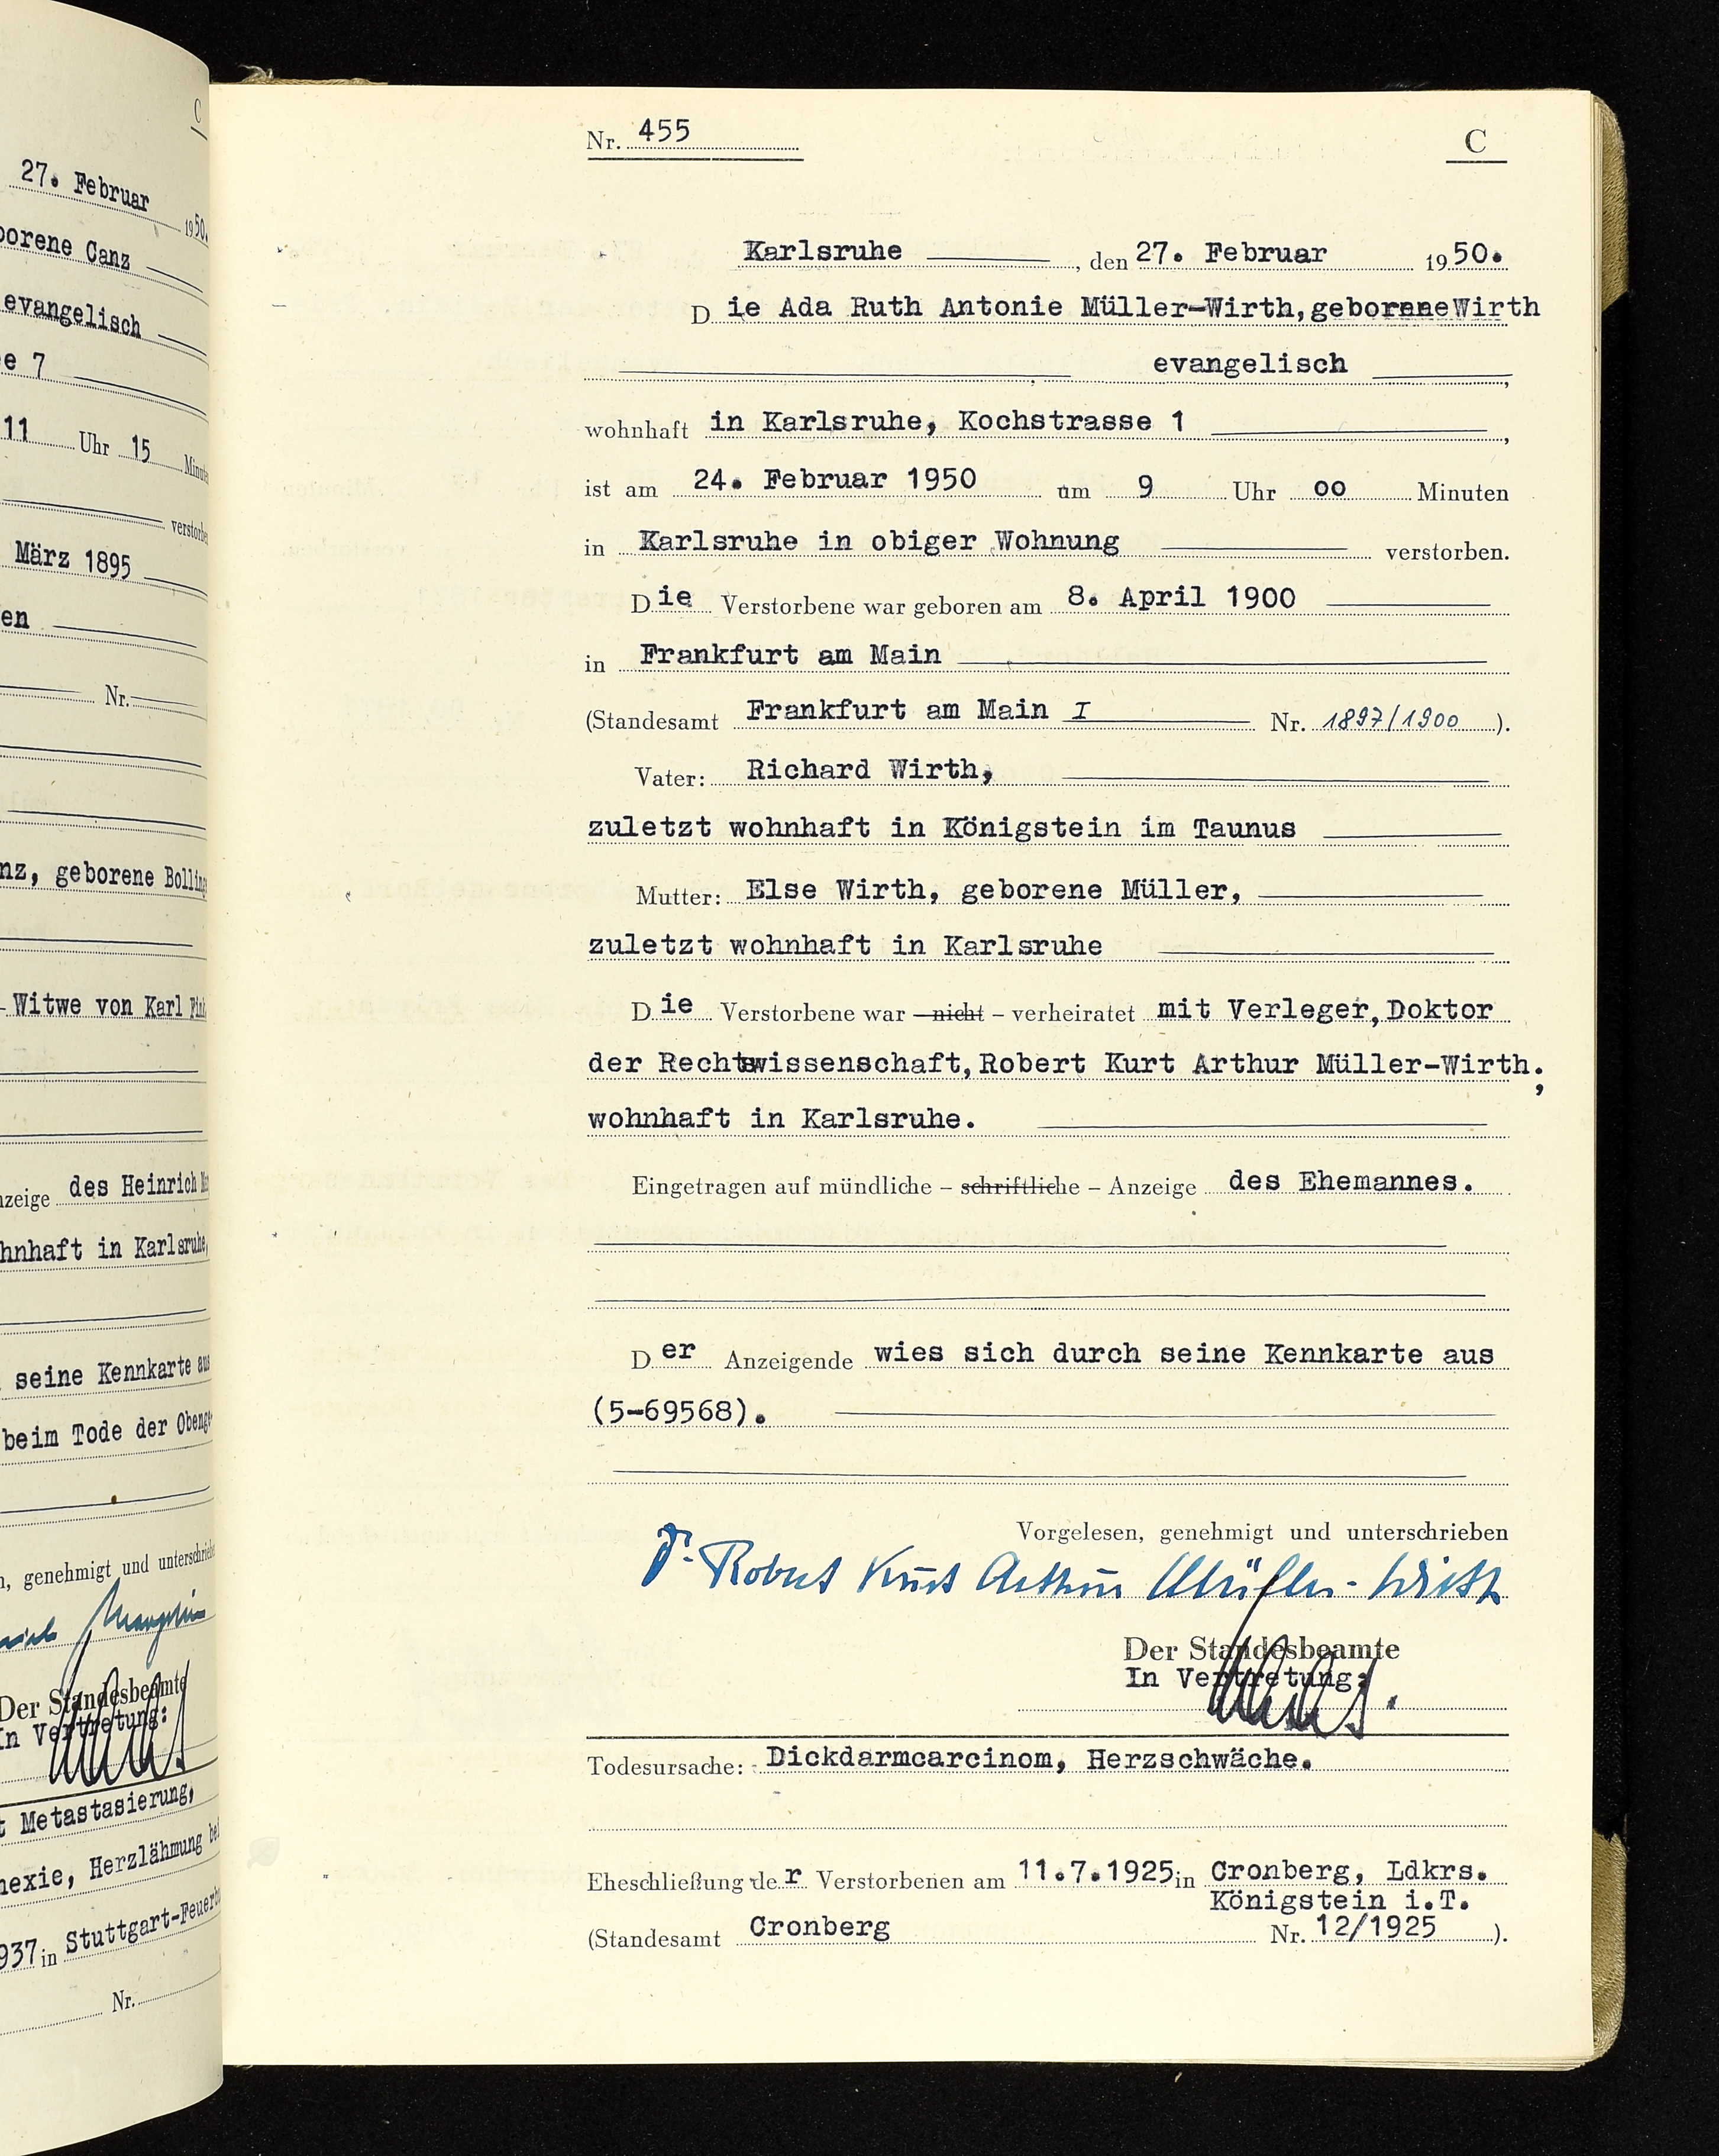 C
27. Februar 1950.
borene Canz
evangelisch
e 7
11 Uhr 15 Minuten
verstorbe
März 1895
en
Nr.
nz, geborene Bolling
Witwe von Karl
nzeige des Heinrich
hnhaft in Karlsruhe,
seine Kennkarte aus
beim Tode der Obeng
n, genehmigt und unterschriebe
Der Standesbeamte
In Vertretung:
t Metastasierung,
hexie, Herzlähmung bei
937 in Stuttgart-Feuerb
Nr.
Nr. 455 C
Karlsruhe, den 27. Februar 1950.
Die Ada Ruth Antonie Müller-Wirth, geborene Wirth
evangelisch,
wohnhaft in Karlsruhe, Kochstrasse 1,
ist am 24. Februar 1950 um 9 Uhr 00 Minuten
in Karlsruhe in obiger Wohnung verstorben.
Die Verstorbene war geboren am 8. April 1900
in Frankfurt am Main
(Standesamt Frankfurt am Main I Nr. 1897/1900).
Vater: Richard Wirth,
zuletzt wohnhaft in Königstein im Taunus
Mutter: Else Wirth, geborene Müller,
zuletzt wohnhaft in Karlsruhe
Die Verstorbene war – nicht – verheiratet mit Verleger, Doktor
der Rechtswissenschaft, Robert Kurt Arthur Müller-Wirth,
wohnhaft in Karlsruhe.
Eingetragen auf mündliche – schriftliche – Anzeige des Ehemannes.
Der Anzeigende wies sich durch seine Kennkarte aus
(5-69568).
Vorgelesen, genehmigt und unterschrieben
Dr. Robert Kurt Arthur Müller-Wirth
Der Standesbeamte
In Vertretung:
Todesursache: Dickdarmcarcinom, Herzschwäche.
Eheschließung der Verstorbenen am 11.7.1925 in Cronberg, Ldkrs.
Königstein i.T.
(Standesamt Cronberg Nr. 12/1925).